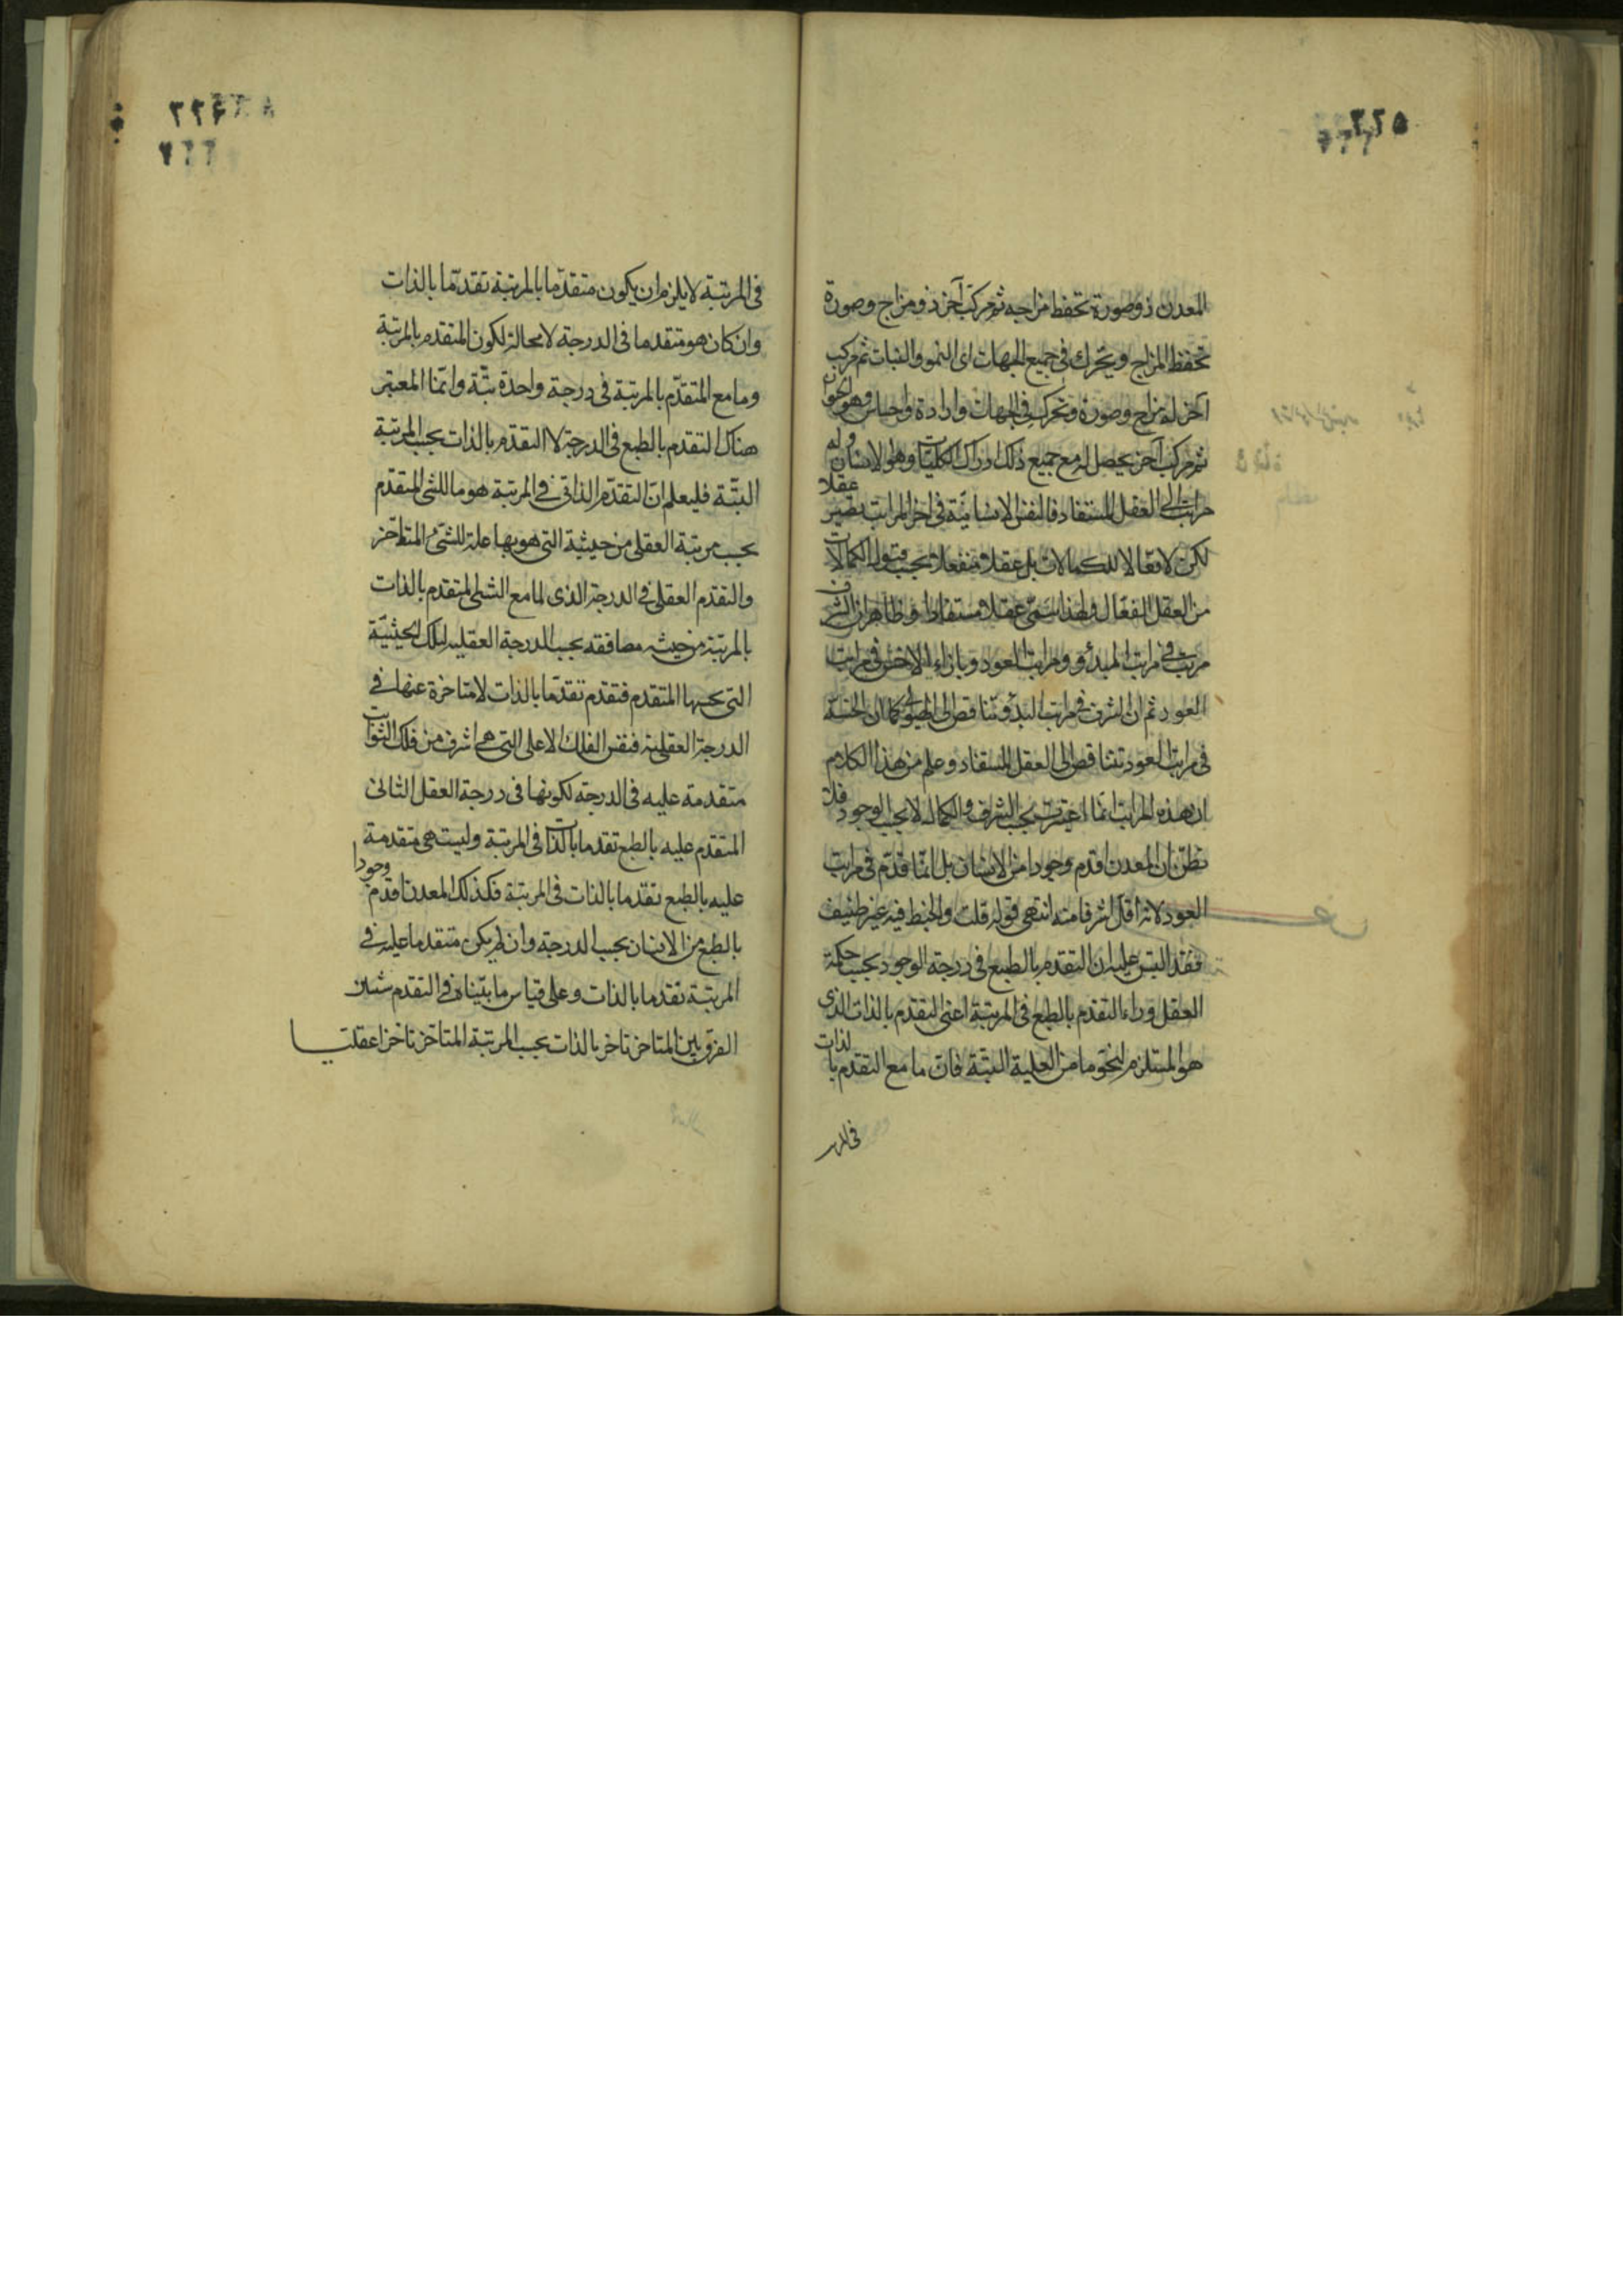 ٢٢٥
المعدن ذو صورة تحفظ مزاجه ثم مركب آخر ذو مزاج وصورة
تحفظ المزاج ويتحرك في جميع الجهات اى النمو والنبات ثم مركب
آخر له مزاج وصورة وتحرك في الجهات وارادة واحساس وهو الحيوان
ثم مركب آخر يحصل له مع جميع ذلك ادراك الكليات وهو الانسان وله
مراتب الى العقل المستفاد فالنفس الانسانية في آخر المراتب تصير عقلا
لكن لا فعالا للكمالات بل عقلا منفعلا بحسب قبول الكمالات
من العقل الفعال ولهذا سمى عقلا مستفادا وظاهر ان الشرف
مرتب في مراتب المبدأ ومراتب العود وبازاء الاخس في مراتب
العود ثم ان الشرف في مراتب البدو تتناقص الى الهيولى كما ان الخسة
في مراتب العود تتناقص الى العقل المستفاد وعلم من هذا الكلام
ان هذه المراتب انما اعتبرت بحسب الشرف والكمال لا بحسب الوجود فلا
تظن ان المعدن اقدم وجودا من الانسان بل انما قدم في مراتب
العود لانه اقل شرفا منه انتهى قوله قلت والخبط فيه غير طفيف
فقد التبس عليه ان التقدم بالطبع في درجة الوجود بحسب حكمة
العقل وراء التقدم بالطبع في المرتبة اعنى التقدم بالذات الذى
هو المستلزم لنحو ما من العلية البتة فان ما مع التقدم بالذات
في المر
٢٢٦
في المرتبة لا يلزم ان يكون متقدما بالمرتبة تقدما بالذات
وان كان هو متقدما في الدرجة لا محالة لكون المتقدم بالمرتبة
وما مع المتقدم بالمرتبة في درجة واحدة بتة وانما المعتبر
هناك التقدم بالطبع في الدرجة لا التقدم بالذات بحسب المرتبة
البتة فليعلم ان التقدم الذاتى في المرتبة هو ما للشئ المتقدم
بحسب مرتبة العقلى من حيثية التى هو بها علة للشئ المتأخر
والتقدم العقلى في الدرجة الذى لما مع الشئ المتقدم بالذات
بالمرتبة من حيث مصافقته بحسب الدرجة العقلية لتلك الحيثية
التى بحسبها المتقدم فتقدم تقدما بالذات لا متاخرة عنها في
الدرجة العقلية فنفس الفلك الاعلى التى هى اشرف من فلك الثوابت
متقدمة عليه في الدرجة لكونها في درجة العقل الثانى
المتقدم عليه بالطبع تقدما بالذات في المرتبة وليست هى متقدمة
عليه بالطبع تقدما بالذات في المرتبة فكذلك المعدن اقدم وجودا
بالطبع من الانسان بحسب الدرجة وان لم يكن متقدما عليه في
المرتبة تقدما بالذات وعلى قياس ما بيناه في التقدم ستبين
الفرق بين المتاخر تاخر بالذات بحسب المرتبة المتاخر تاخرا عقليا